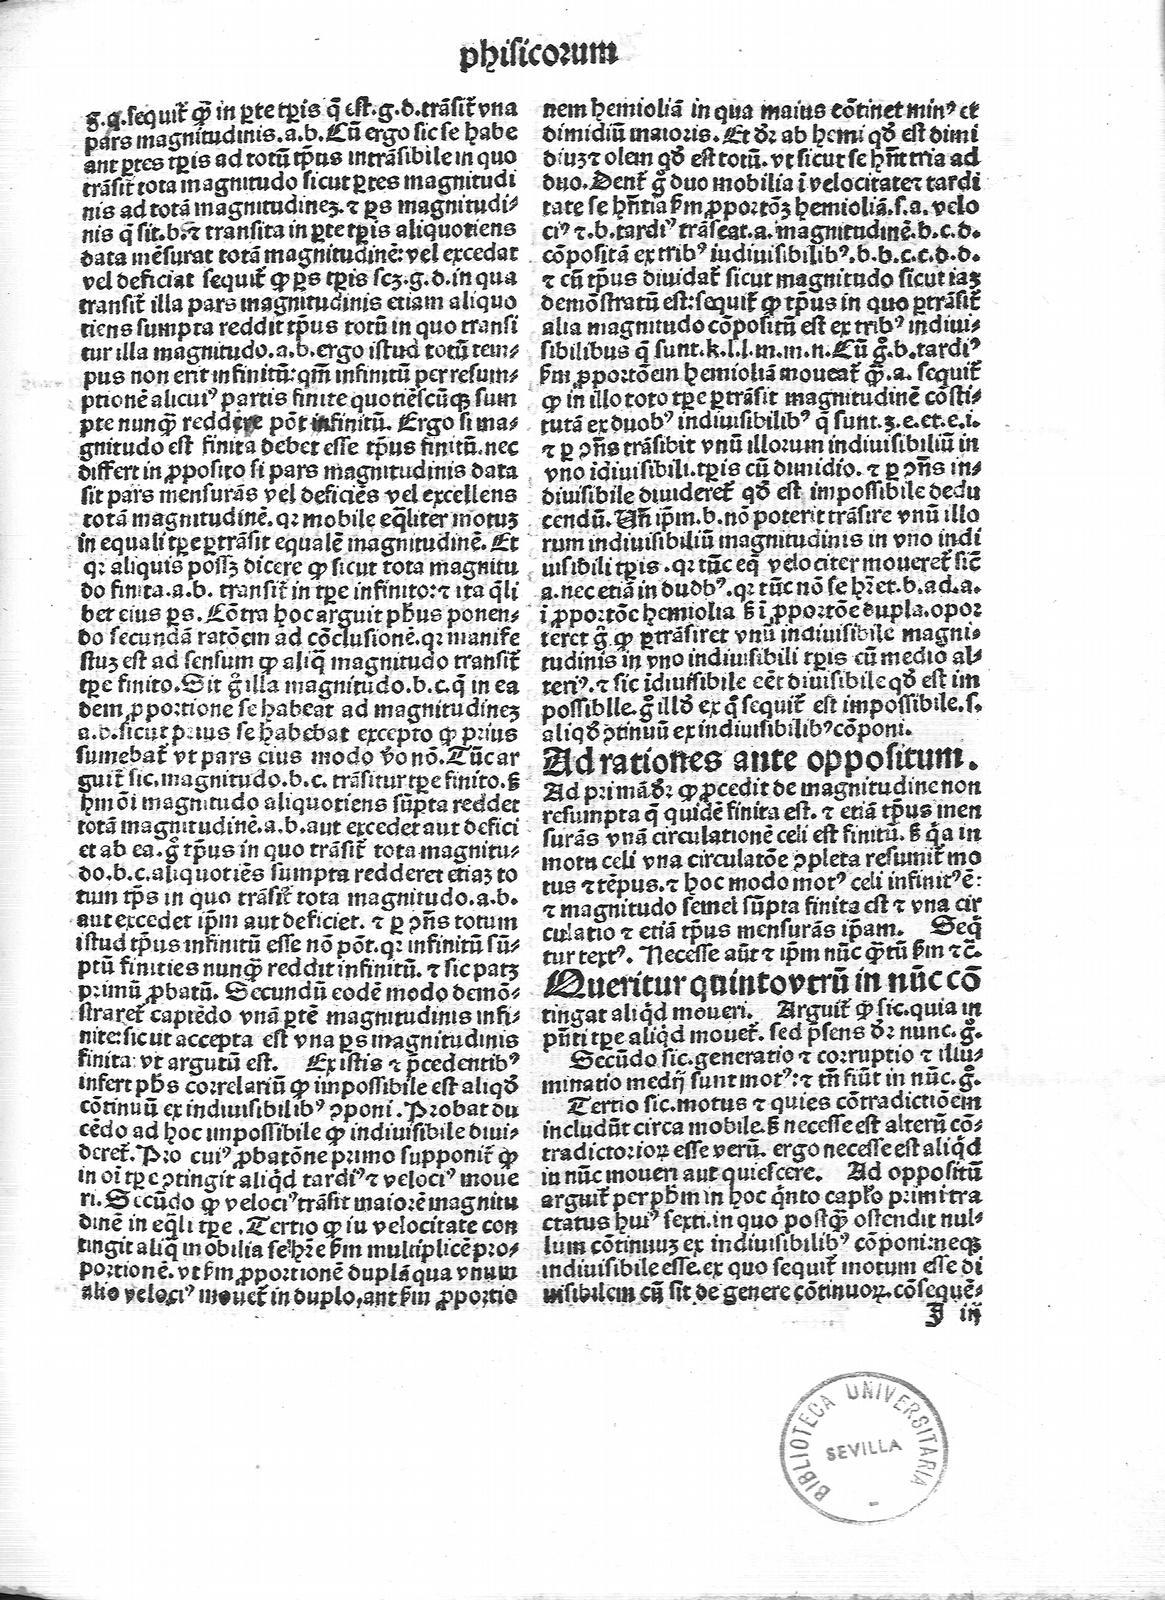 phisicorum
g.q.sequit᷑ ꝙ in ꝑte tꝑis q̄ est.g.d.trāsit᷑ vna
pars magnitudinis.a.b.Cū ergo sic se habe
ant ꝑtes tꝑis ad totū tp̄us intrāsibile in quo
trāsit᷑ tota magnitudo sicut ꝑtes magnitudi
nis ad totā magnitudineꝫ.⁊ ꝑs magnitudi-
nis q̄ sit.b.⁊ transita in ꝑte tꝑis aliquotiens
data mēsurat totā magnitudinē: vel excedat
vel deficiat sequit᷑ ꝙ ꝑs tꝑis scꝫ.g.d.in qua
transit᷑ illa pars magnitudinis etiam aliquo
tiens sumpta reddit tp̄us totū in quo transi
tur illa magnitudo.a.b.ergo istud totū tem-
pus non erit infinitū: qm̄ infinitū per resum-
ptionē alicui⁹ partis finite quotiēscūqꝫ sum
pte nunꝙ̄ reddere pōt infinitū. Ergo si ma-
gnitudo est finita debet esse tp̄us finitū.nec
differt in ꝓposito si pars magnitudinis data
sit pars mensurās vel deficiēs vel excellens
totā magnitudinē.qꝛ mobile eq̄liter motuꝫ
in equali tꝑe ꝑtrāsit equalē magnitudinē. Et
qꝛ aliquis possꝫ dicere ꝙ sicut tota magnitu
do finita.a.b. transit᷑ in tꝑe infinito:⁊ ita q̄li
bet eius ꝑs. Cōtra hoc arguit ph̄us ponen-
do secundā ratōem ad cōclusionē.qꝛ manife
stuꝫ est ad sensum ꝙ aliq̄ magnitudo transit᷑
tꝑe finito.Sit g̊ illa magnitudo.b.c.q̄ in ea
dem ꝓportione se habeat ad magnitudineꝫ
a.b.sicut prius se habebat excepto ꝙ prius
sumebat᷑ vt pars eius modo v̄o nō.Tūc ar
guit᷑ sic.magnitudo.b.c. trāsitur tꝑe finito.ß
hm̄ōi magnitudo aliquotiens sūpta reddet
totā magnitudinē.a.b.aut excedet aut defici
et ab ea.g̊ tp̄us in quo trāsit᷑ tota magnitu-
do.b.c.aliquotiēs sumpta redderet etiaꝫ to
tum tp̄s in quo trāsit᷑ tota magnitudo.a.b.
aut excedet ip̄m aut deficiet. ⁊ ꝑ ꝯn̄s totum
istud tp̄us infinitū esse nō pōt.qꝛ infinitū sū-
ptū finities nunꝙ̄ reddit infinitū. ⁊ sic patꝫ
primū ꝓbatū. Secundū eodē modo demō-
straret᷑ capiēdo vnā ꝑtē magnitudinis infi-
nite:sicut accepta est vna ꝑs magnitudinis
finita vt argutū est. Ex istis ⁊ p̄cedentib⁹
infert ph̄s correlariū ꝙ impossibile est aliqđ
cōtinuū ex indiuisibilib⁹ ꝯponi. Probat du
cēdo ad hoc impossibile ꝙ indiuisibile diui-
deret᷑. Pro cui⁹ ꝓbatōne primo supponit᷑ ꝙ
in oī tꝑe ꝯtingit aliqđ tardi⁹ ⁊ veloci⁹ moue
ri. Secūdo ꝙ veloci⁹ trāsit maiorē magnitu
dinē in eq̄li tꝑe .Tertio ꝙ in velocitate con
tingit aliq̄ mobilia se hr̄e ẜm multiplicē pro-
portionē. vt ẜm ꝓportionē duplā qua vnum
alio veloci⁹ mouet᷑ in duplo, aut ẜm ꝓportio
nem hemioliā in qua maius cōtinet min⁹ et
dimidiū maioris. Et dr̄ ab hemi qđ est dimi
diuꝫ ⁊ olem qđ est totū. vt sicut se hn̄t tria ad
duo. Dent᷑ g̊ duo mobilia ī velocitate ⁊ tardi
tate se hn̄tia ẜm ꝓportōꝫ hemioliā.s.a. velo
ci⁹ ⁊.b.tardi⁹ trāseat.a.magnitudinē.b.c.d.
cōpositā ex trib⁹ indiuisibilib⁹.b.b.c.c.d.d.
⁊ cū tp̄us diuidat᷑ sicut magnitudo sicut iaꝫ
demōstratū est:sequit᷑ ꝙ tp̄us in quo ꝑtrāsit᷑
alia magnitudo cōpositū est ex trib⁹ indiui-
sibilibus q̄ sunt.k.l.l.m.m.n.Cū g̊.b.tardi⁹
ẜm ꝓportōem hemioliā moueat᷑ ꝙ̄.a. sequit᷑
ꝙ in illo toto tꝑe ꝑtrāsit magnitudinē cōsti-
tutā ex duob⁹ indiuisibilib⁹ q̄ sunt.ꝫ.e.et.e.i.
⁊ ꝑ ꝯn̄s trāsibit vnū illorum indiuisibiliū in
vno īdiuisibili.tꝑis cū dimidio. ⁊ ꝑ ꝯn̄s in-
diuisibile diuideret᷑ qđ est impossibile dedu
cendū. Uñ ip̄m.b.nō poterit trāsire vnū illo
rum indiuisibiliū magnitudinis in vno indi
uisibili tꝑis .qꝛ tūc eq̄ velociter moueret᷑ sic̄
a.nec etiā in duob⁹.qꝛ tūc nō se hr̄et.b.ad.a.
ī ꝓportōe hemiolia ß ī ꝓportōe dupla.opor
teret g̊ ꝙ ꝑtrāsiret vnū indiuisibile magni-
tudinis in vno indiuisibili tꝑis cū medio al-
teri⁹.⁊ sic īdiuisibile eēt diuisibile qđ est im
possiblle.g̊ illđ ex q̄ sequit᷑ est impossibile.s.
aliqđ ꝯtinuū ex indiuisibilib⁹ cōponi.
Ad rationes ante oppositum.
Ad primā dr̄ ꝙ ꝓcedit de magnitudine non
resumpta q̄ quidē finita est. ⁊ etiā tp̄us men
surās vnā circulationē celi est finitū. ß q̄a in
motu celi vna circulatōe ꝯpleta resumit᷑ mo
tus ⁊ tēpus.⁊ hoc modo mot⁹ celi infinit⁹ ē:
⁊ magnitudo semel sūpta finita est ⁊ vna cir
culatio ⁊ etiā tp̄us mensurās ip̄am. Seq̄
tur text⁹. Necesse aūt ⁊ ip̄m nūc ꝙ̄tū ẜm ⁊ c̄.
Queritur quinto vtrū in nūc cō
tingat aliq̄d moueri. Arguit᷑ ꝙ sic.quia in
pn̄ti tꝑe aliq̄d mouet᷑. sed p̄sens dr̄ nunc. g̊.
Secūdo sic.generatio ⁊ corruptio ⁊ illu-
minatio medij sunt mot⁹:⁊ tn̄ fiūt in nūc. g̊.
Tertio sic.motus ⁊ quies cōtradictiōem
includūt circa mobile.ß necesse est alterū cō-
tradictorioꝝ esse verū. ergo necesse est aliq̄d
in nūc moueri aut quiescere. Ad oppositū
arguit᷑ per ph̄m in hoc q̄nto cap̄lo primi tra
ctatus hui⁹ sexti.in quo postꝙ̄ ostendit nul-
lum cōtinuuꝫ ex indiuisibilib⁹ cōponi:neqꝫ
indiuisibile esse.ex quo sequit᷑ motum esse di
uisibilem cū sit de genere cōtinuoꝝ.cōsequē-
J iij
BIBLIOTECA UNIVERSITARIA
SEVILLA